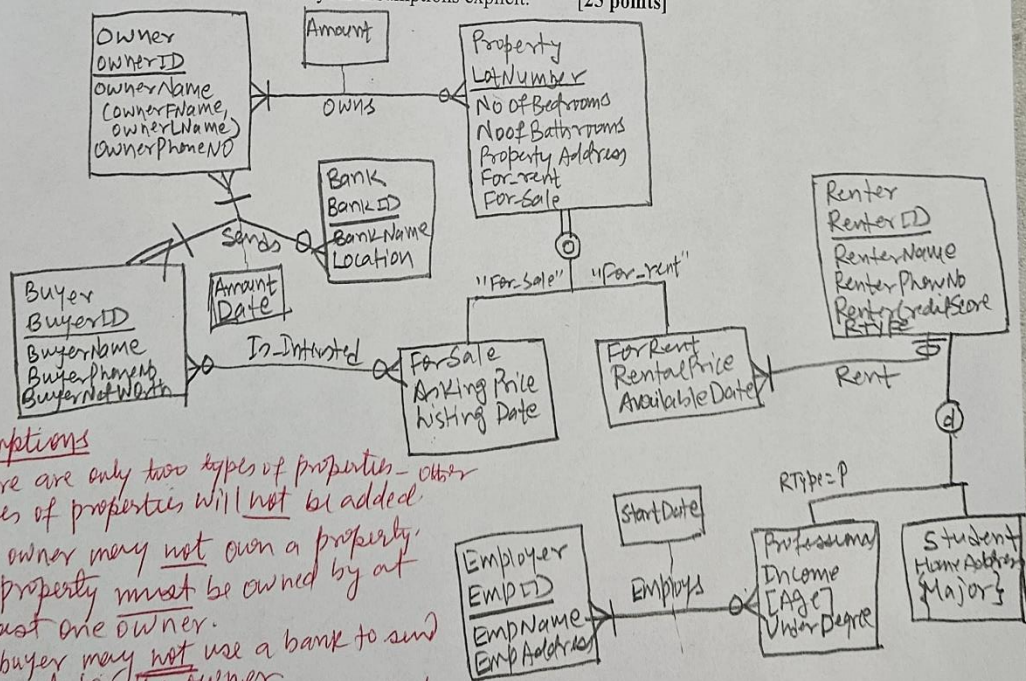 [25 points]
Owner
OwnerID
OwnerName
(OwnerFName,
OwnerLName)
OwnerPhoneNO
Amount
Owns
Property
LotNumber
No Of Bedrooms
No of Bathrooms
Property Address
For_rent
For-Sale
Bank
BankID
BankName
Location
Sends
Amount
Date
Buyer
BuyerID
BuyerName
BuyerPhoneNo
BuyerNetWorth
"For-sale"
"For_rent"
o
ForSale
Asking Price
Listing Date
ForRent
RentalPrice
AvailableDate
Rent
Renter
RenterID
RenterName
RenterPhoneNo
RenterCreditScore
RType
d
RType=P
StartDate
Employs
Employer
EmpID
EmpName
EmpAddress
Income
[Age]
UnderDegree
Student
{Major}
mptions
re are only two types of properties - other
es of properties will not be added
owner may not own a property.
property must be owned by at
ast one owner.
buyer may not use a bank to send
owner